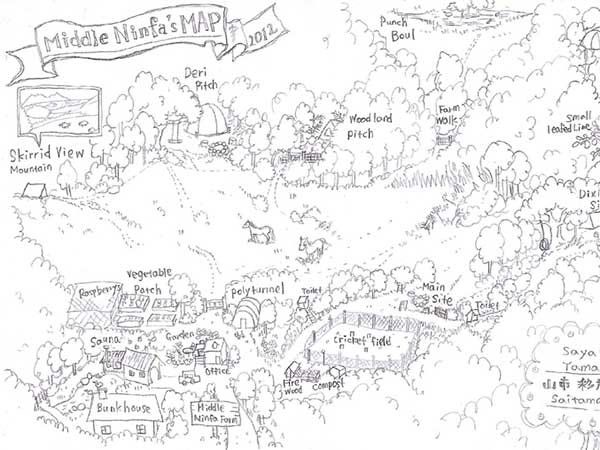 Middle Ninfa's MAP
2012
Punch
Boul
Deri
Pitch
Woodland
pitch
Farm
Walk
Small
leafed Lime
Skirrid View
Mountain
Dixi
Si
Vegetable
Patch
Raspberrys
Polytunnel
Toilet
Main
Site
Toilet
Sauna
Garden
Office
Cricket field
Fire
Wood
Compost
Bunkhouse
Middle
Ninfa Farm
Saya
Yama
Saitama